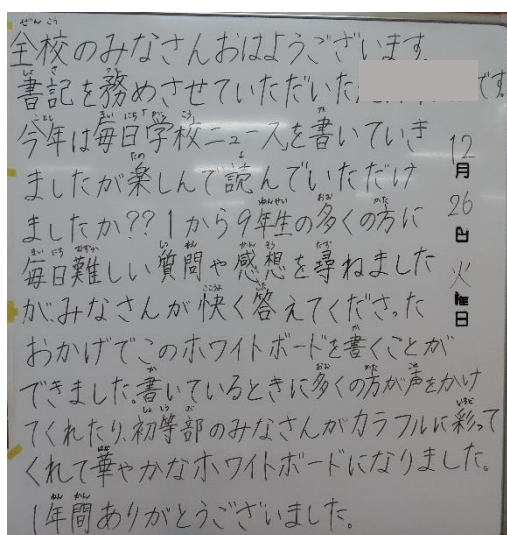 全校のみなさんおはようございます。
書記を務めさせていただいた です。
今年は毎日「学校ニュース」を書いていき
ましたが楽しんで読んでいただけ
ましたか??1から9年生の多くの方に
毎日難しい質問や感想を尋ねました
が、みなさんが快く答えてくださった
おかげでこのホワイトボードを書くことが
できました。書いているときに多くの方が声をかけ
てくれたり、初等部のみなさんがカラフルに彩って
くれて華やかなホワイトボードになりました。
1年間ありがとうございました。
12月26日火曜日